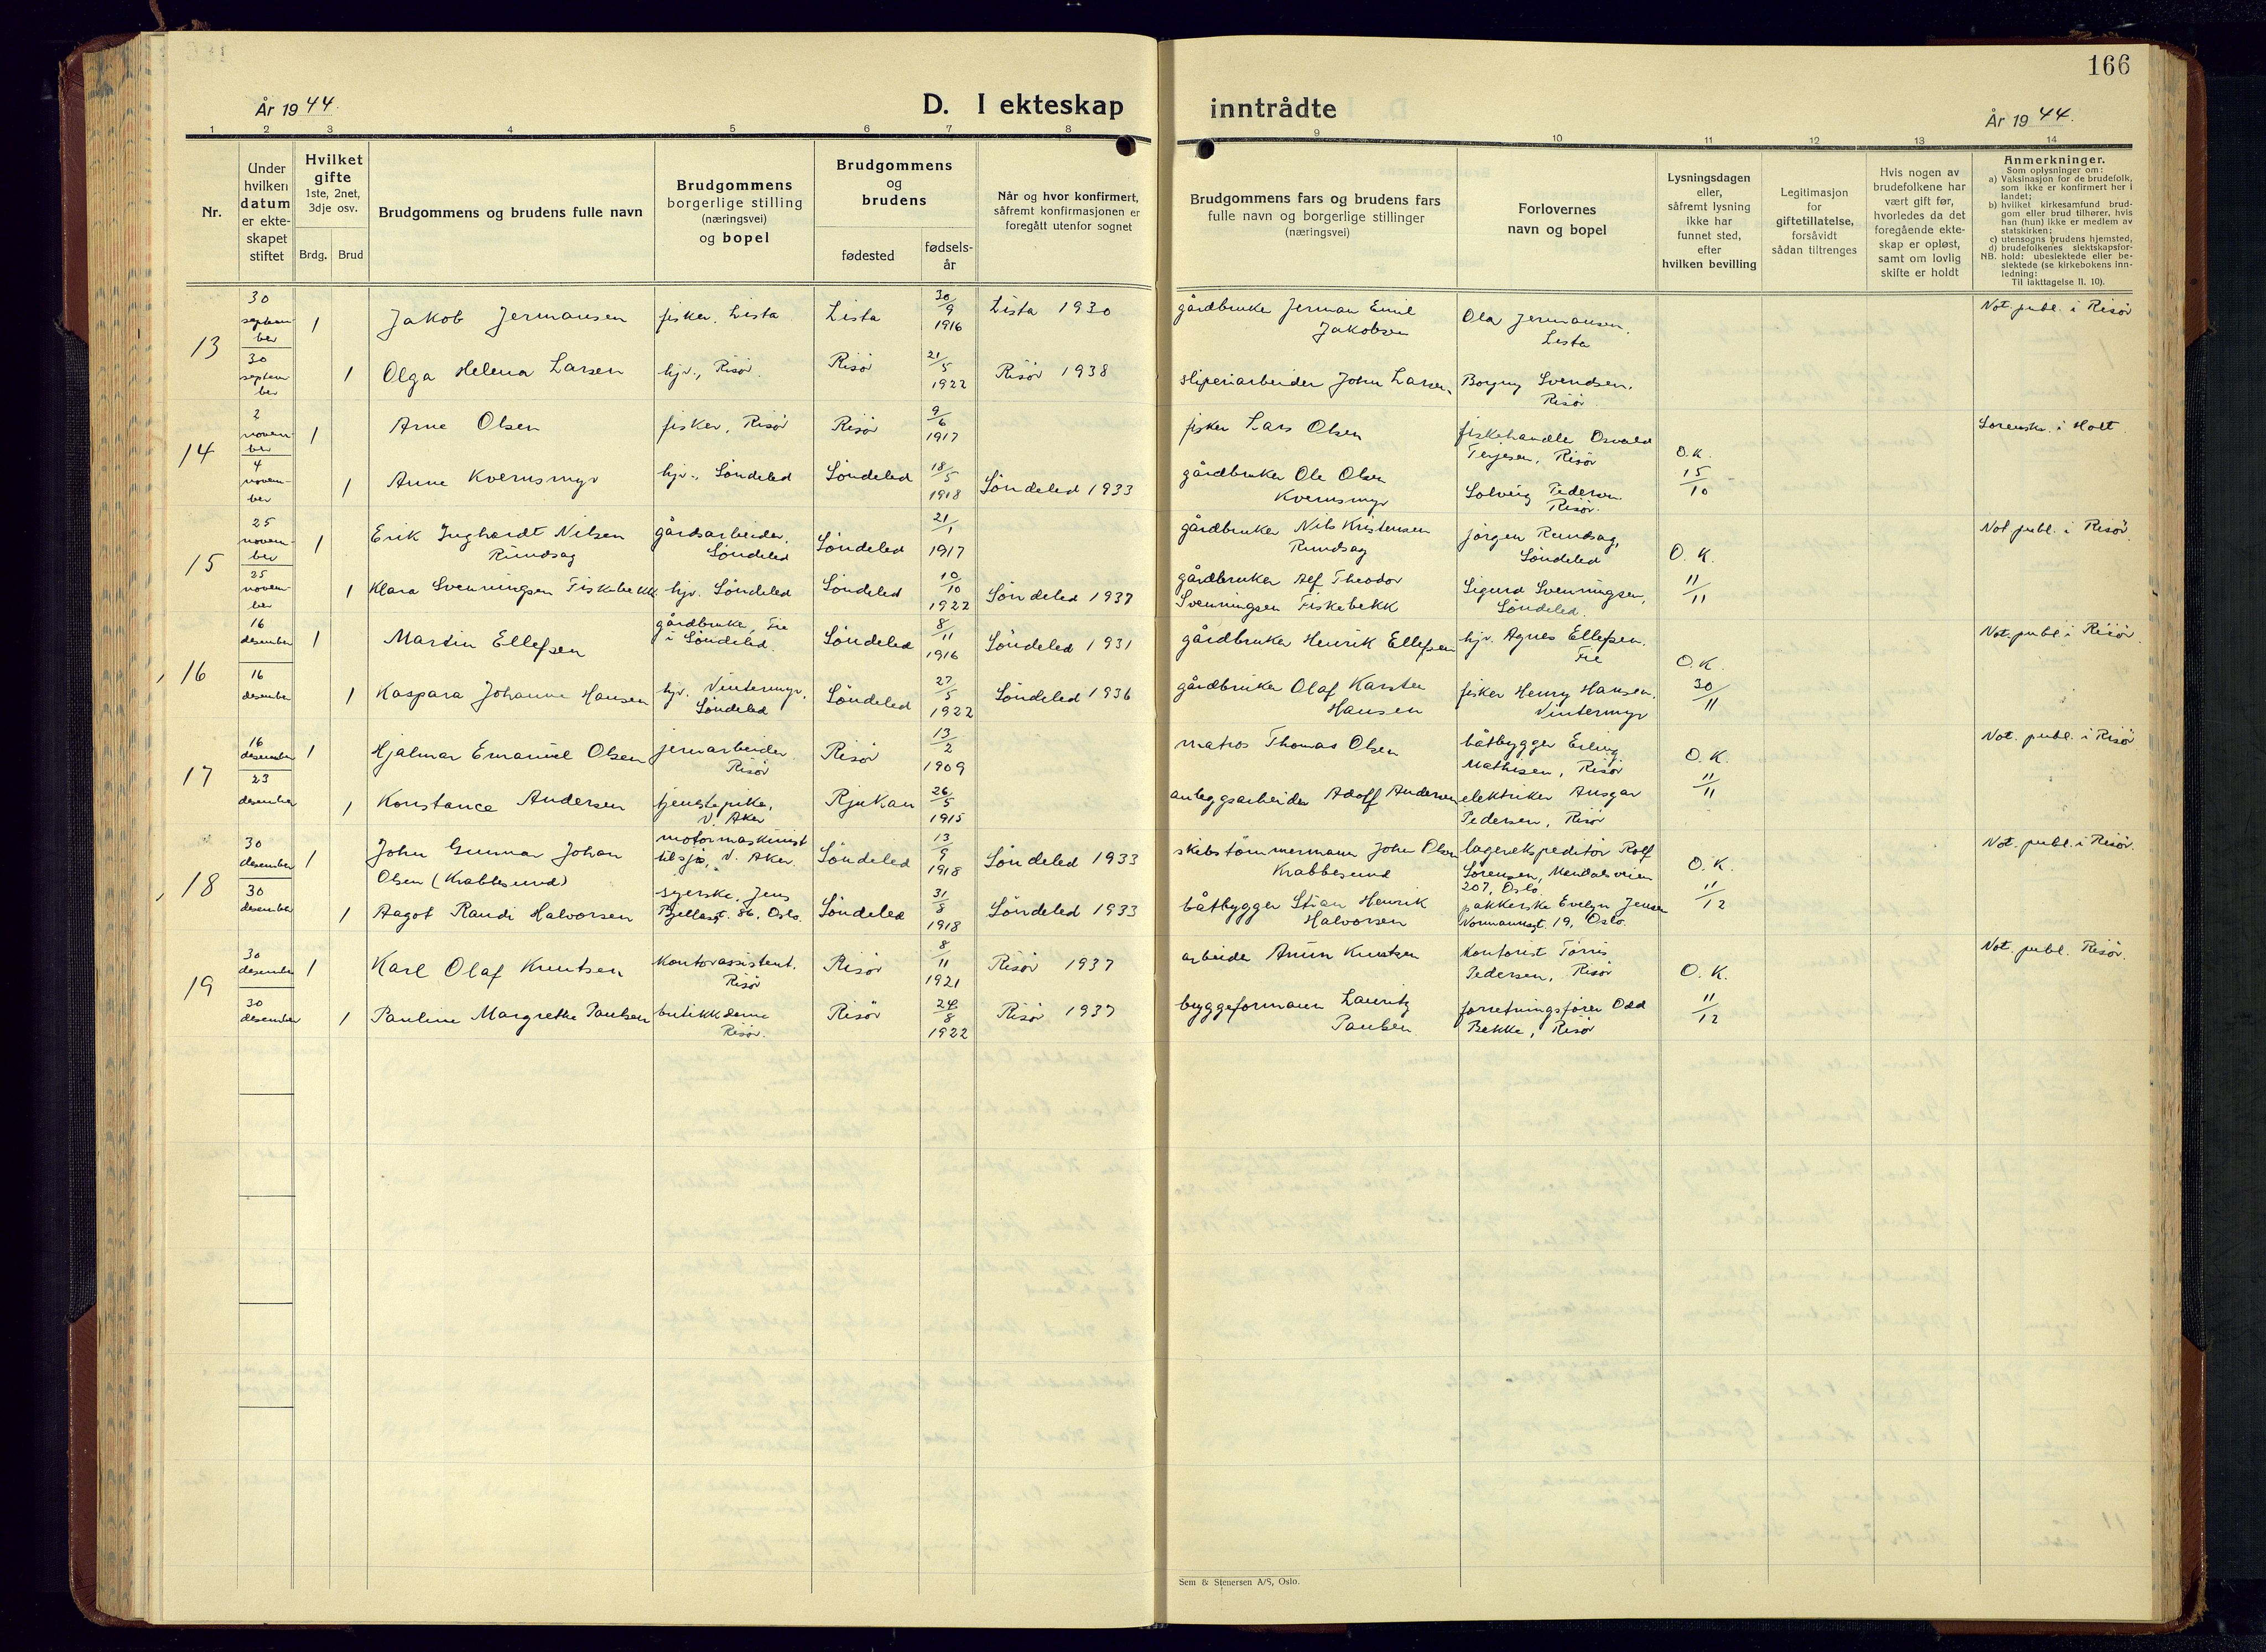 166
År 1944.
D. I ekteskap inntrådte
År 1944.
1 2 3 4 5 6 7 8 9 10 11 12 13 14
Nr.
Under
hvilken
datum
er ekte-
skapet
stiftet
Hvilket
gifte
1ste, 2net,
3dje osv.
Brdg. Brud
Brudgommens og brudens fulle navn
Brudgommens
borgerlige stilling
(næringsvei)
og bopel
Brudgommens
og
brudens
fødested
fødsels-
år
Når og hvor konfirmert,
såfremt konfirmasjonen er
foregått utenfor sognet
Brudgommens fars og brudens fars
fulle navn og borgerlige stillinger
(næringsvei)
Forlovernes
navn og bopel
Lysningsdagen
eller,
såfremt lysning
ikke har
funnet sted,
efter
hvilken bevilling
Legitimasjon
for
giftetillatelse,
forsåvidt
sådan tiltrenges
Hvis nogen av
brudefolkene har
vært gift før,
hvorledes da det
foregående ekte-
skap er opløst,
samt om lovlig
skifte er holdt
Anmerkninger.
Som oplysninger om:
a) Vaksinasjon for de brudefolk,
som ikke er konfirmert her i
landet;
b) hvilket kirkesamfund brud-
gom eller brud tilhører, hvis
han (hun) ikke er medlem av
statskirken;
c) utensogns brudens hjemsted,
d) brudefolkenes slektskapsfor-
NB. hold: ubeslektede eller be-
slektede (se kirkebokens inn-
ledning:
Til iakttagelse II. 10).
13
30 septem-ber 1 Jakob Jermansen fisker, Lista Lista 30/9 1916 Lista 1930 gårdbruker Jerman Emil Jakobsen Ola Jermansen, Lista Not. publ. i Risör
30 septem-ber 1 Olga Helena Larsen hjv., Risör. Risör 21/5 1922 Risör 1938 sliperiarbeider John Larsen, Borgny Svendsen, Risör
14
2 novem-ber 1 Arne Olsen fisker, Risör Risör 9/6 1917 fisker Lars Olsen fiskehandler Osvald Terjesen, Risör O.K. 15/10 Sorenskr. i Holt
4 novem-ber 1 Anne Kvernsmyr hjv., Söndeled Söndeled 18/5 1918 Söndeled 1933 gårdbruker Ole Olsen Kvernsmyr Solveig Pedersen Risör.
15
25 novem-ber 1 Erik Inghardt Nilsen Rundsag gårdsarbeider, Söndeled Söndeled 21/1 1917 gårdbruker Nils Kristensen Rundsag Jörgen Rundsag, Söndeled O.K. 11/11 Not publ. i Risör
25 novem-ber 1 Klara Svenningsen Fiskebekk hjv. Söndeled Söndeled 10/10 1922 Söndeled 1937 gårdbruker Alf Theodor Svenningsen Fiskebekk Sigurd Svenningsen, Söndeled.
16
16 desember 1 Martin Ellefsen gårdbruker, Fie i Söndeled. Söndeled 8/11 1916 Söndeled 1931 gårdbruker Henrik Ellefsen hjv. Agnes Ellefsen. Fie O.K. 30/11 Not. publ i Risör.
16 desember 1 Kaspara Johanne Hansen hjv. Vintermyr, Söndeled Söndeled 27/5 1922 Söndeled 1936 gårdbruker Olaf Karsten Hansen fisker Henry Hansen, Vintermyr
17
16 desember 1 Hjalmar Emanuel Olsen jernarbeider Risör Risör 13/2 1909 matros Thomas Olsen båtbygger Erling Mathisen, Risör O.K. 11/11 Not. publ. i Risör
23 desember 1 Konstance Andersen tjenestepike, V. Aker Rjukan 26/5 1915 anleggsarbeider Adolf Andersen elektriker Ansgar Pedersen, Risör
18
30 desember 1 John Gunnar Johan Olsen (Krabbesund) motormaskinist tilsjøs, V. Aker. Söndeled 13/9 1918 Söndeled 1933 skibstömmermann John Olsen Krabbesund lagerekspeditör Rolf Sörensen, 207, Oslo O.K. 11/12 Not. publ. i Risör.
30 desember 1 Aagot Randi Halvorsen syerske, Jens Bjellesgt. 86, Oslo. Söndeled 31/8 1918 Söndeled 1933 båtbygger Stian Henrik Halvorsen pakkerske Evelyn Jensen Normannsgt. 19, Oslo.
19
30 desember 1 Karl Olaf Knutsen kontorassistent. Risör Risör 8/11 1921 Risör 1937 arbeider Knutsen kontorist Törris Pedersen, Risör O.K. 11/12 Not. publ. Risör.
30 desember 1 Pauline Margrethe Paulsen butikkdame Risör. Risör 24/8 1922 Risör 1937 byggeformann Lauritz Paulsen forretningsförer Odd Bekke, Risör
Sem & Stenersen A/S, Oslo.